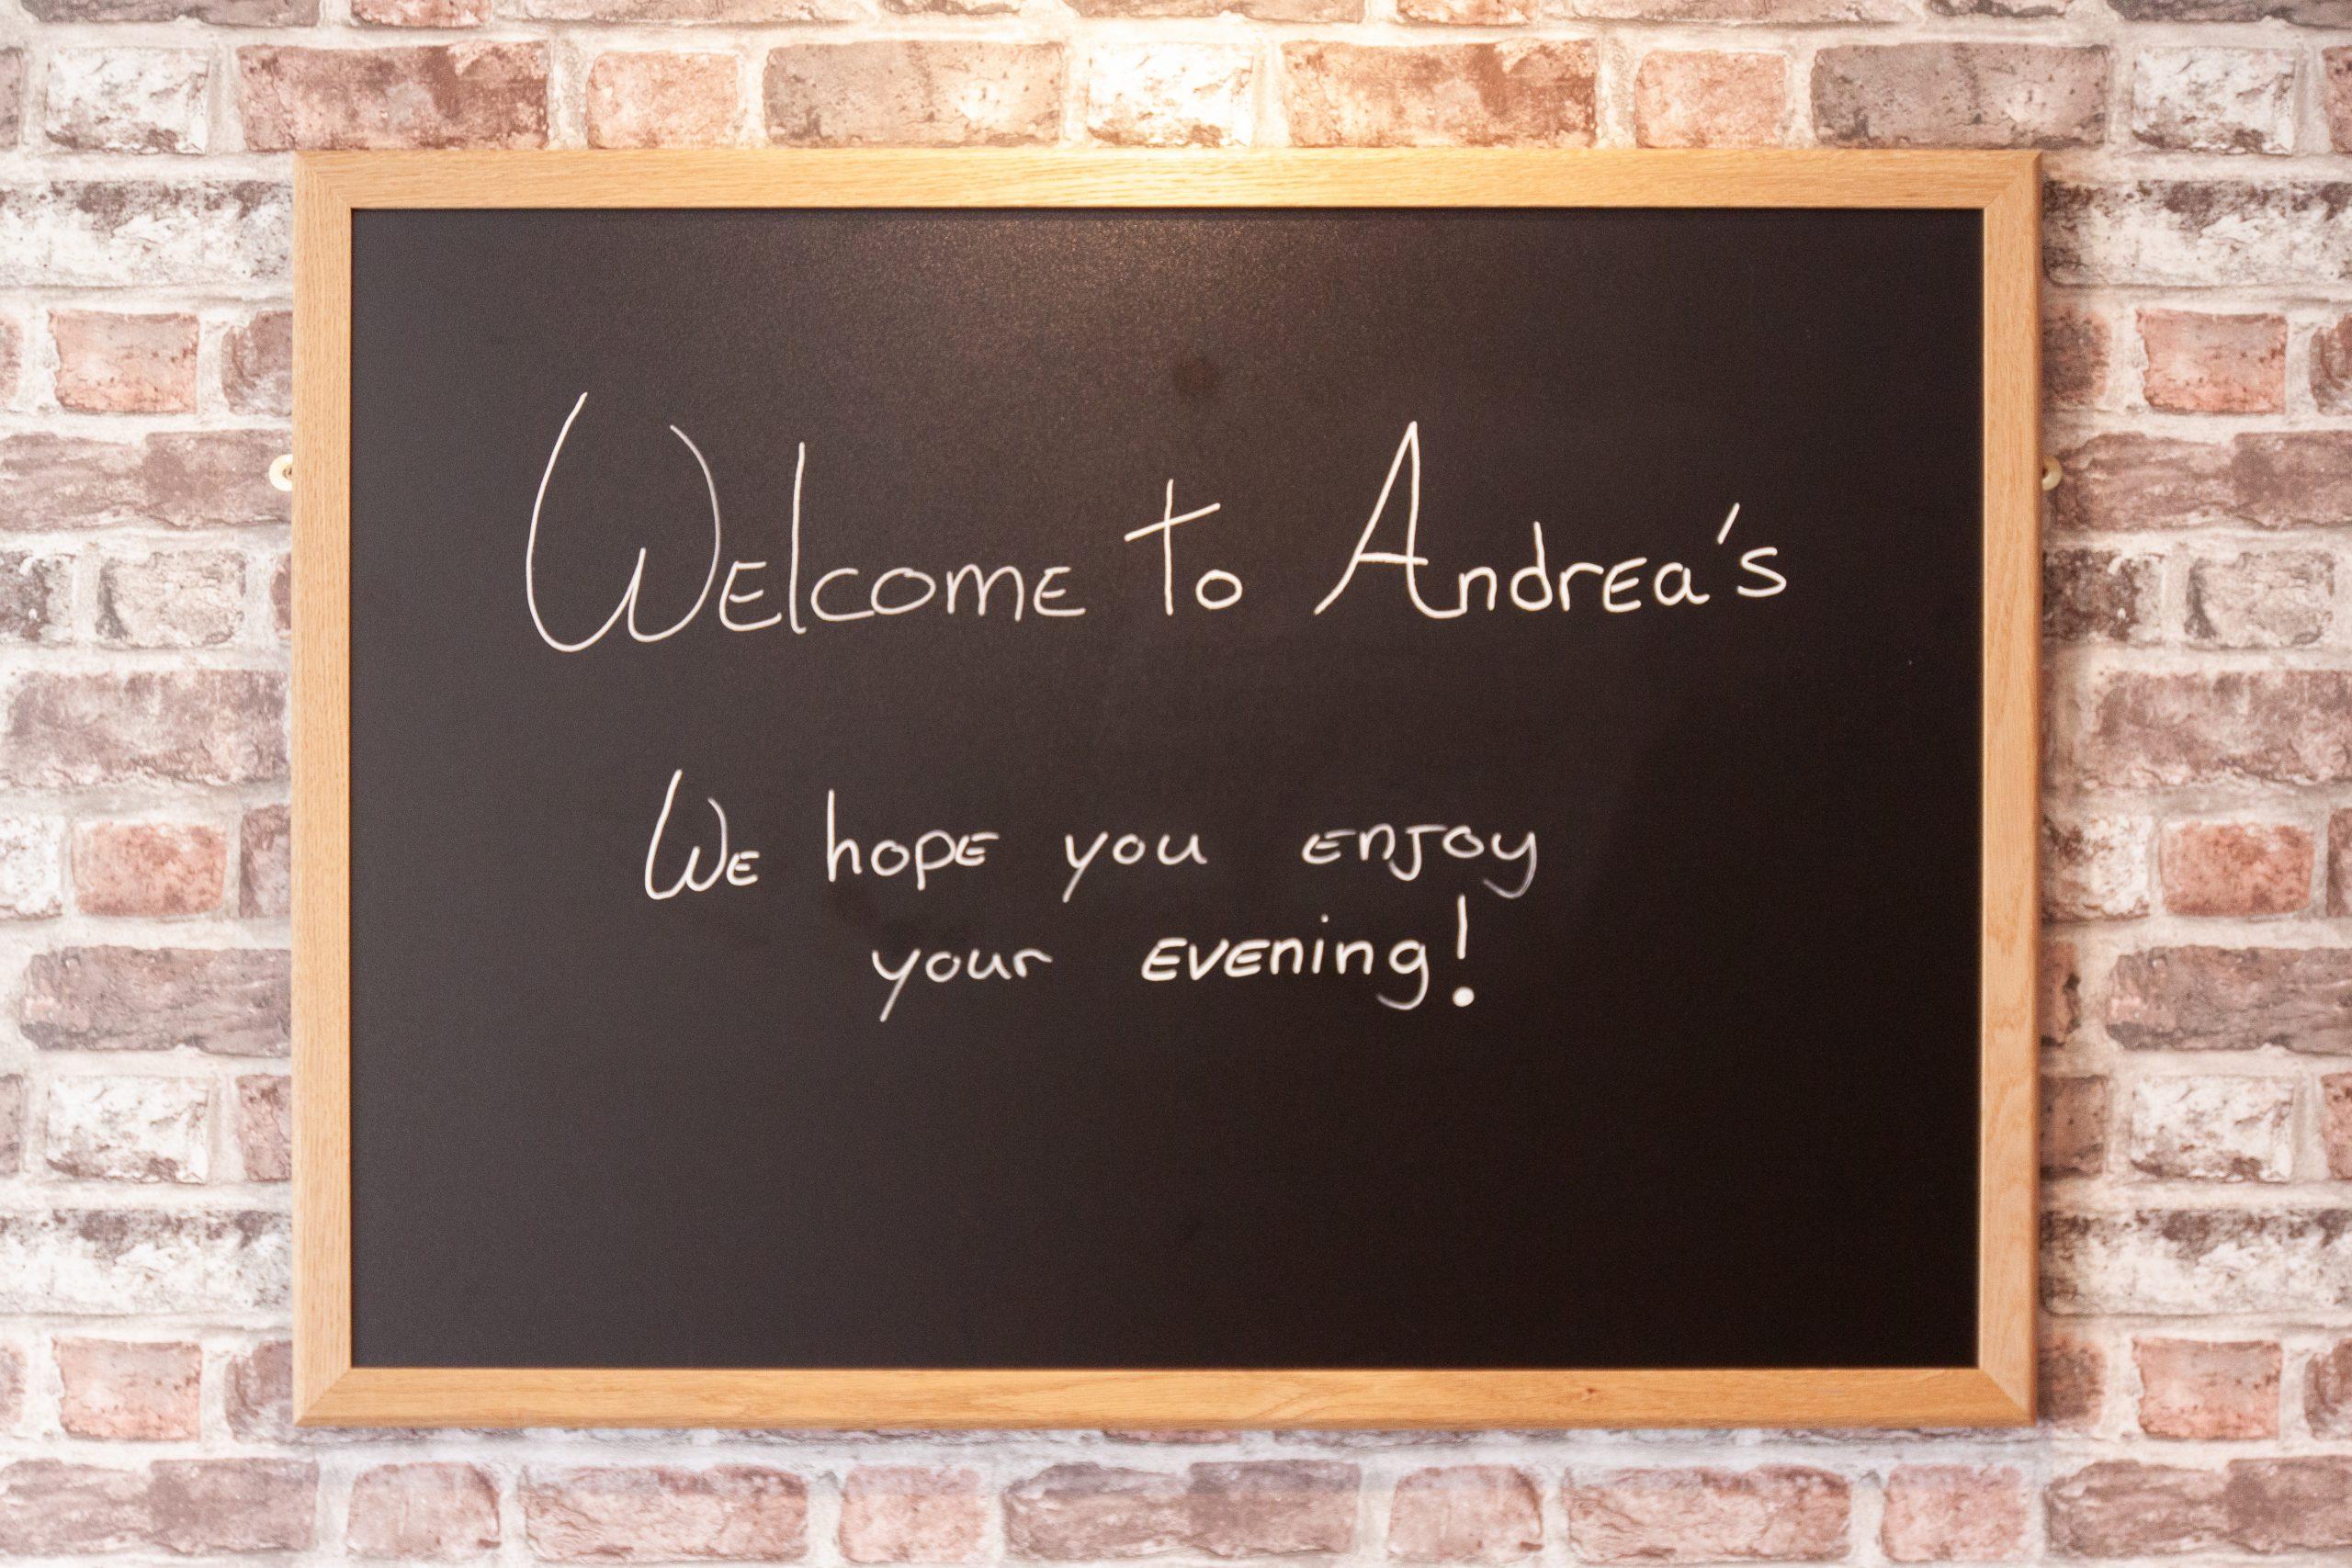 Welcome to Andrea's
We hope you enjoy
your evening!